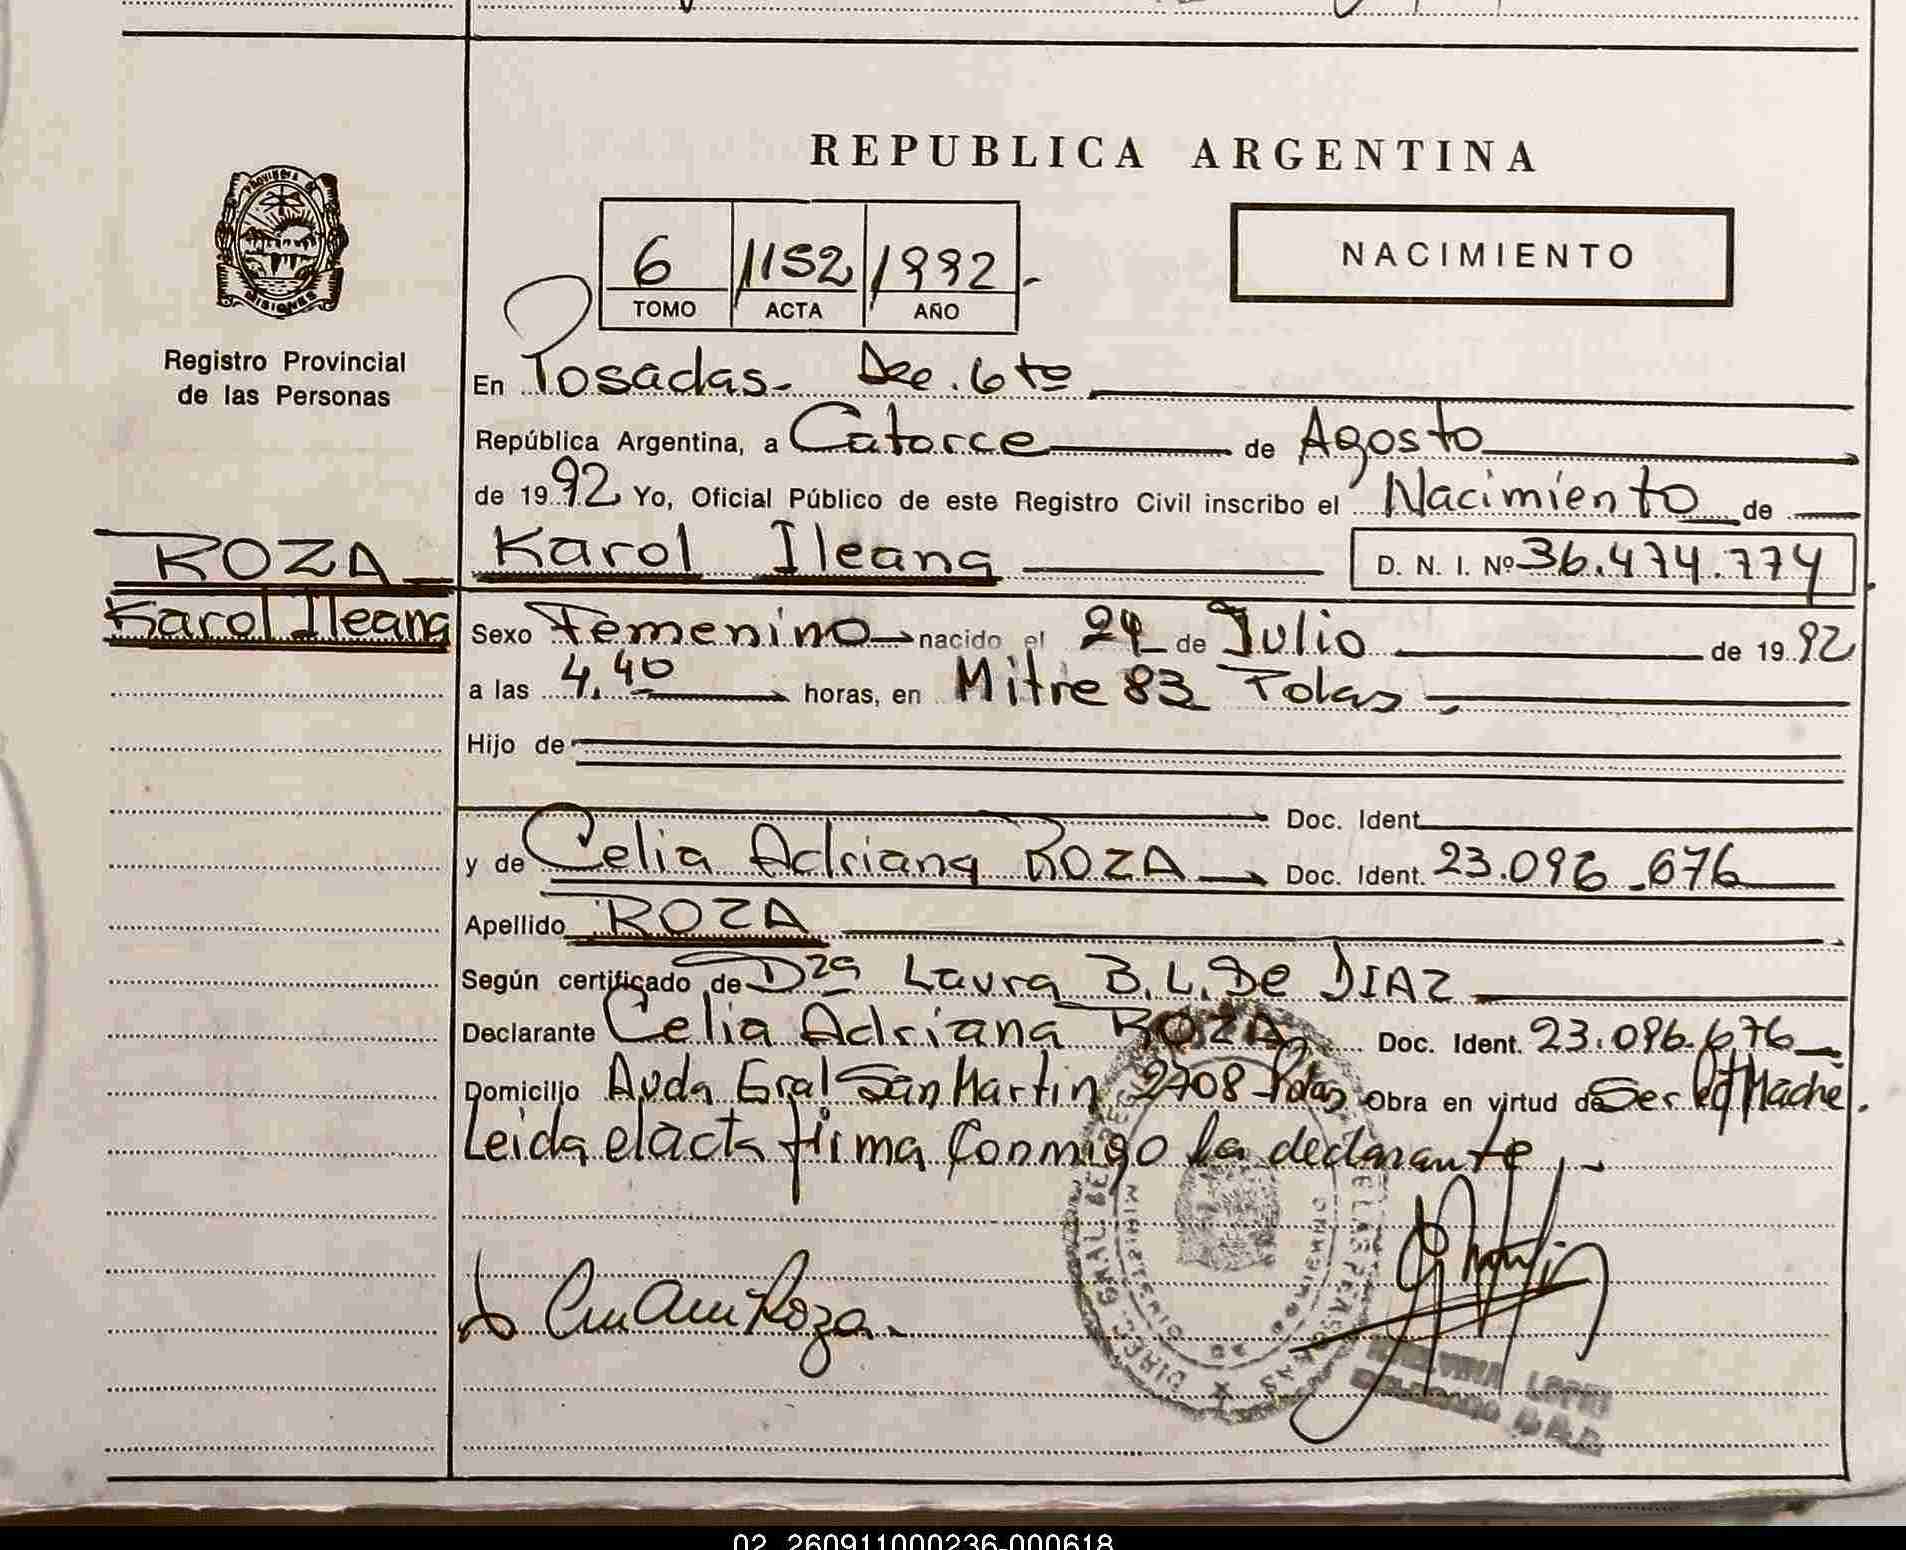 REPUBLICA ARGENTINA
NACIMIENTO
6 1152 1992.-
TOMO ACTA AÑO
PROVINCIA DE
MISIONES
Registro Provincial
de las Personas
ROZA
Karol Ileana
En Posadas- Dee. 6to
República Argentina, a Catorce de Agosto
de 1992 Yo, Oficial Público de este Registro Civil inscribo el Nacimiento de
Karol Ileana D. N. I. Nº 36.474.774
Sexo Femenino nacido el 24 de Julio de 1992
a las 4.40 horas, en Mitre 83 Pdas.
Hijo de
Doc. Ident.
y de Celia Adriana ROZA Doc. Ident. 23.096.676
Apellido ROZA
Según certificado de Dra Laura B. L. De DIAZ
Declarante Celia Adriana ROZA Doc. Ident. 23.096.676
Domicilio Avda Gral San Martin 2708 Pdas Obra en virtud de Ser la Madre.
Leida el acta firma conmigo la declarante.-
Roza.
02_260911000236-000618